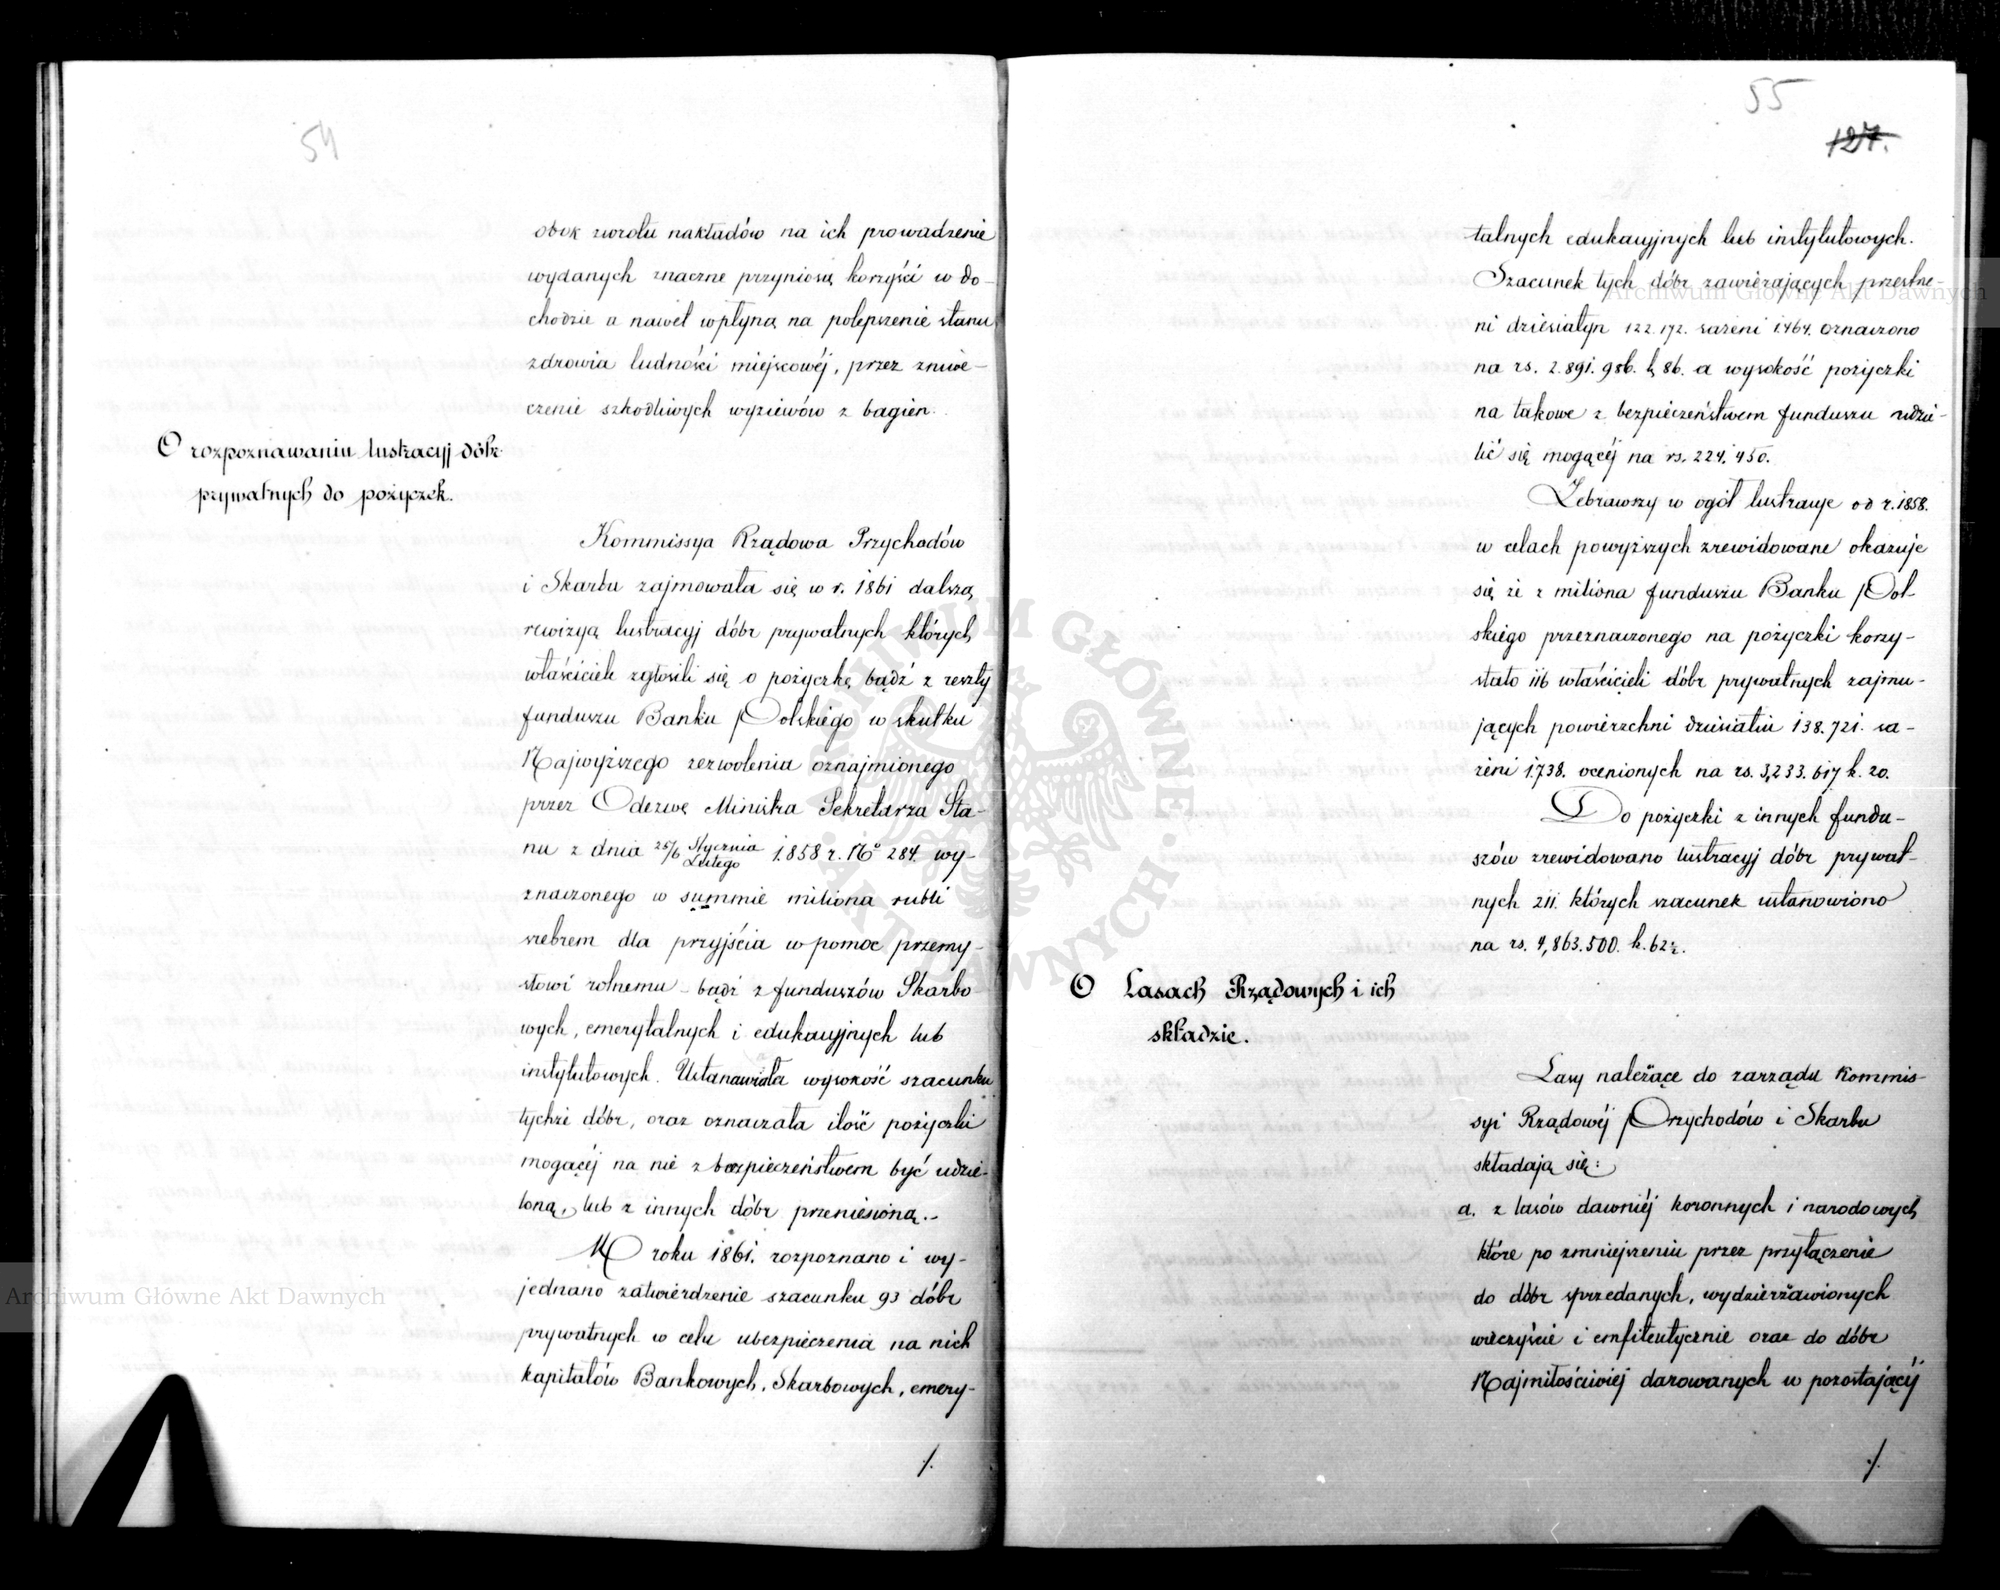 54
obok zwrotu nakładów na ich prowadzenie
wydanych znaczne przyniosą korzyści w do-
chodzie a nawet wpłyną na polepszenie stanu
zdrowia ludności miejscowéj, przez zniwe-
czenie szkodliwych wyziewów z bagien.
O rozpoznawaniu lustracyj dóbr
prywatnych do pożyczek.
Kommissya Rządowa Przychodów
i Skarbu zajmowała się w r. 1861 dalszą
rewizyą lustracyj dóbr prywatnych których
właściciele zgłosili się o pożyczkę bądź z reszty
funduszu Banku Polskiego w skutku
Najwyższego zezwolenia oznajmionego
przez Odezwę Ministra Sekretarza Sta-
nu z dnia 25/6 Stycznia/Lutego 1.858 r. No 284 wy-
znaczonego w summie miliona rubli
srebrem dla przyjścia w pomoc przemy-
słowi rolnemu – bądź z funduszów Skarbo-
wych, emerytalnych i edukacyjnych lub
instytutowych. Ustanawiała wysokość szacunku
tychże dóbr, oraz oznaczała ilość pożyczki
mogącéj na nie z bezpieczeństwem być udzie-
loną, lub z innych dóbr przeniesioną.-
W roku 1861. rozpoznano i wy-
jednano zatwierdzenie szacunku 93 dóbr
prywatnych w celu ubezpieczenia na nich
kapitałów Bankowych, Skarbowych, emery-
./.
55
127.
talnych edukacyjnych lub instytutowych.
Szacunek tych dóbr zawierających przestrze-
ni dziesiatyn 122.172. sażeni 1.464. oznaczono
na rs. 2.891.986. k 86. a wysokość pożyczki
na takowe z bezpieczeństwem funduszu udzie-
lić się mogącéj na rs. 224.450.
Zebrawszy w ogół lustracye od r. 1858.
w celach powyższych zrewidowane okazuje
się że z miliona funduszu Banku Pol-
skiego przeznaczonego na pożyczki korzy-
stało 116 właścicieli dóbr prywatnych zajmu-
jących powierzchni dziesiatin 138.721. sa-
żeni 1.738. ocenionych na rs. 3,233.617 k. 20.
Do pożyczki z innych fundu-
szów zrewidowano lustracyj dóbr prywat-
nych 211. których szacunek ustanowiono
na rs. 4,863.500. k. 62½.
O Lasach Rządowych i ich
składzie.
Lasy należące do zarządu Kommis-
syi Rządowéj Przychodów i Skarbu
składają się:
a. z lasów dawniéj koronnych i narodowych
które po zmniejszeniu przez przyłączenie
do dóbr sprzedanych, wydzierżawionych
wieczyście i emfiteutycznie oraz do dóbr
Najmiłościwiej darowanych w pozostającéj
./.
Archiwum Główne Akt Dawnych
Archiwum Główne Akt Dawnych
ARCHIWUM GŁÓWNE · AKT DAWNYCH ·